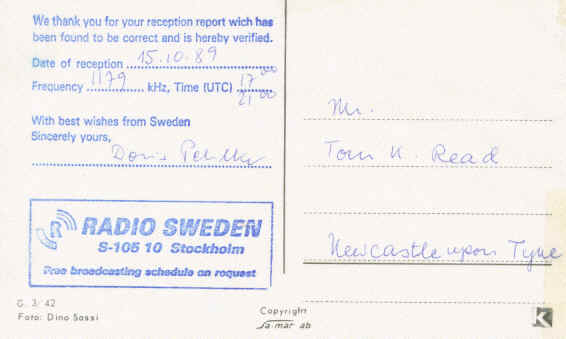 We thank you for your reception report wich has
been found to be correct and is hereby verified.
Date of reception 15.10.89
Frequency 1179 kHz, Time (UTC) 17⁰⁰
21⁰⁰
With best wishes from Sweden
Sincerely yours,
Doris
R RADIO SWEDEN
S-105 10 Stockholm
Free broadcasting schedule on request
G. 3/42
Foto: Dino Sassi
Mr.
Tom K. Read
Newcastle upon Tyne
Copyright
sa-mar ab
K